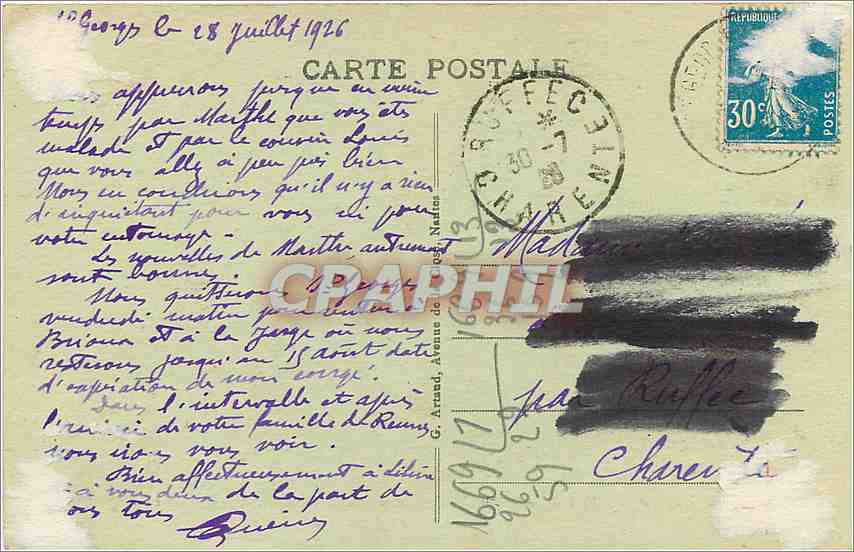 St Georges le 28 Juillet 1926
CARTE POSTALE
apprenons presque en même
temps par Marthe que vous êtes
malade et par le cousin Louis
que vous allez à peu près bien
Nous en concluons qu'il n'y a rien
d'inquiétant pour vous ni pour
votre entourage.
Les nouvelles de Marthe autrement
sont bonnes.
Nous quitterons St Georges
vendredi matin pour
Brioux et à la Jarge où nous
resterons jusqu'au 15 août date
d'expiration de mon congé.
Dans l'intervalle et après
l'arrivée de votre famille de Rennes
nous irons vous voir.
Bien affectueusement à
à vous deux de la part de
nous tous
G. Artaud, Avenue de la Close, Nantes
CPAPHIL
RUFFEC
30 -7
CHARENTE
RÉPUBLIQUE
30c
POSTES
Madame
par Ruffec
Charente
1669/1
26-9 29
59